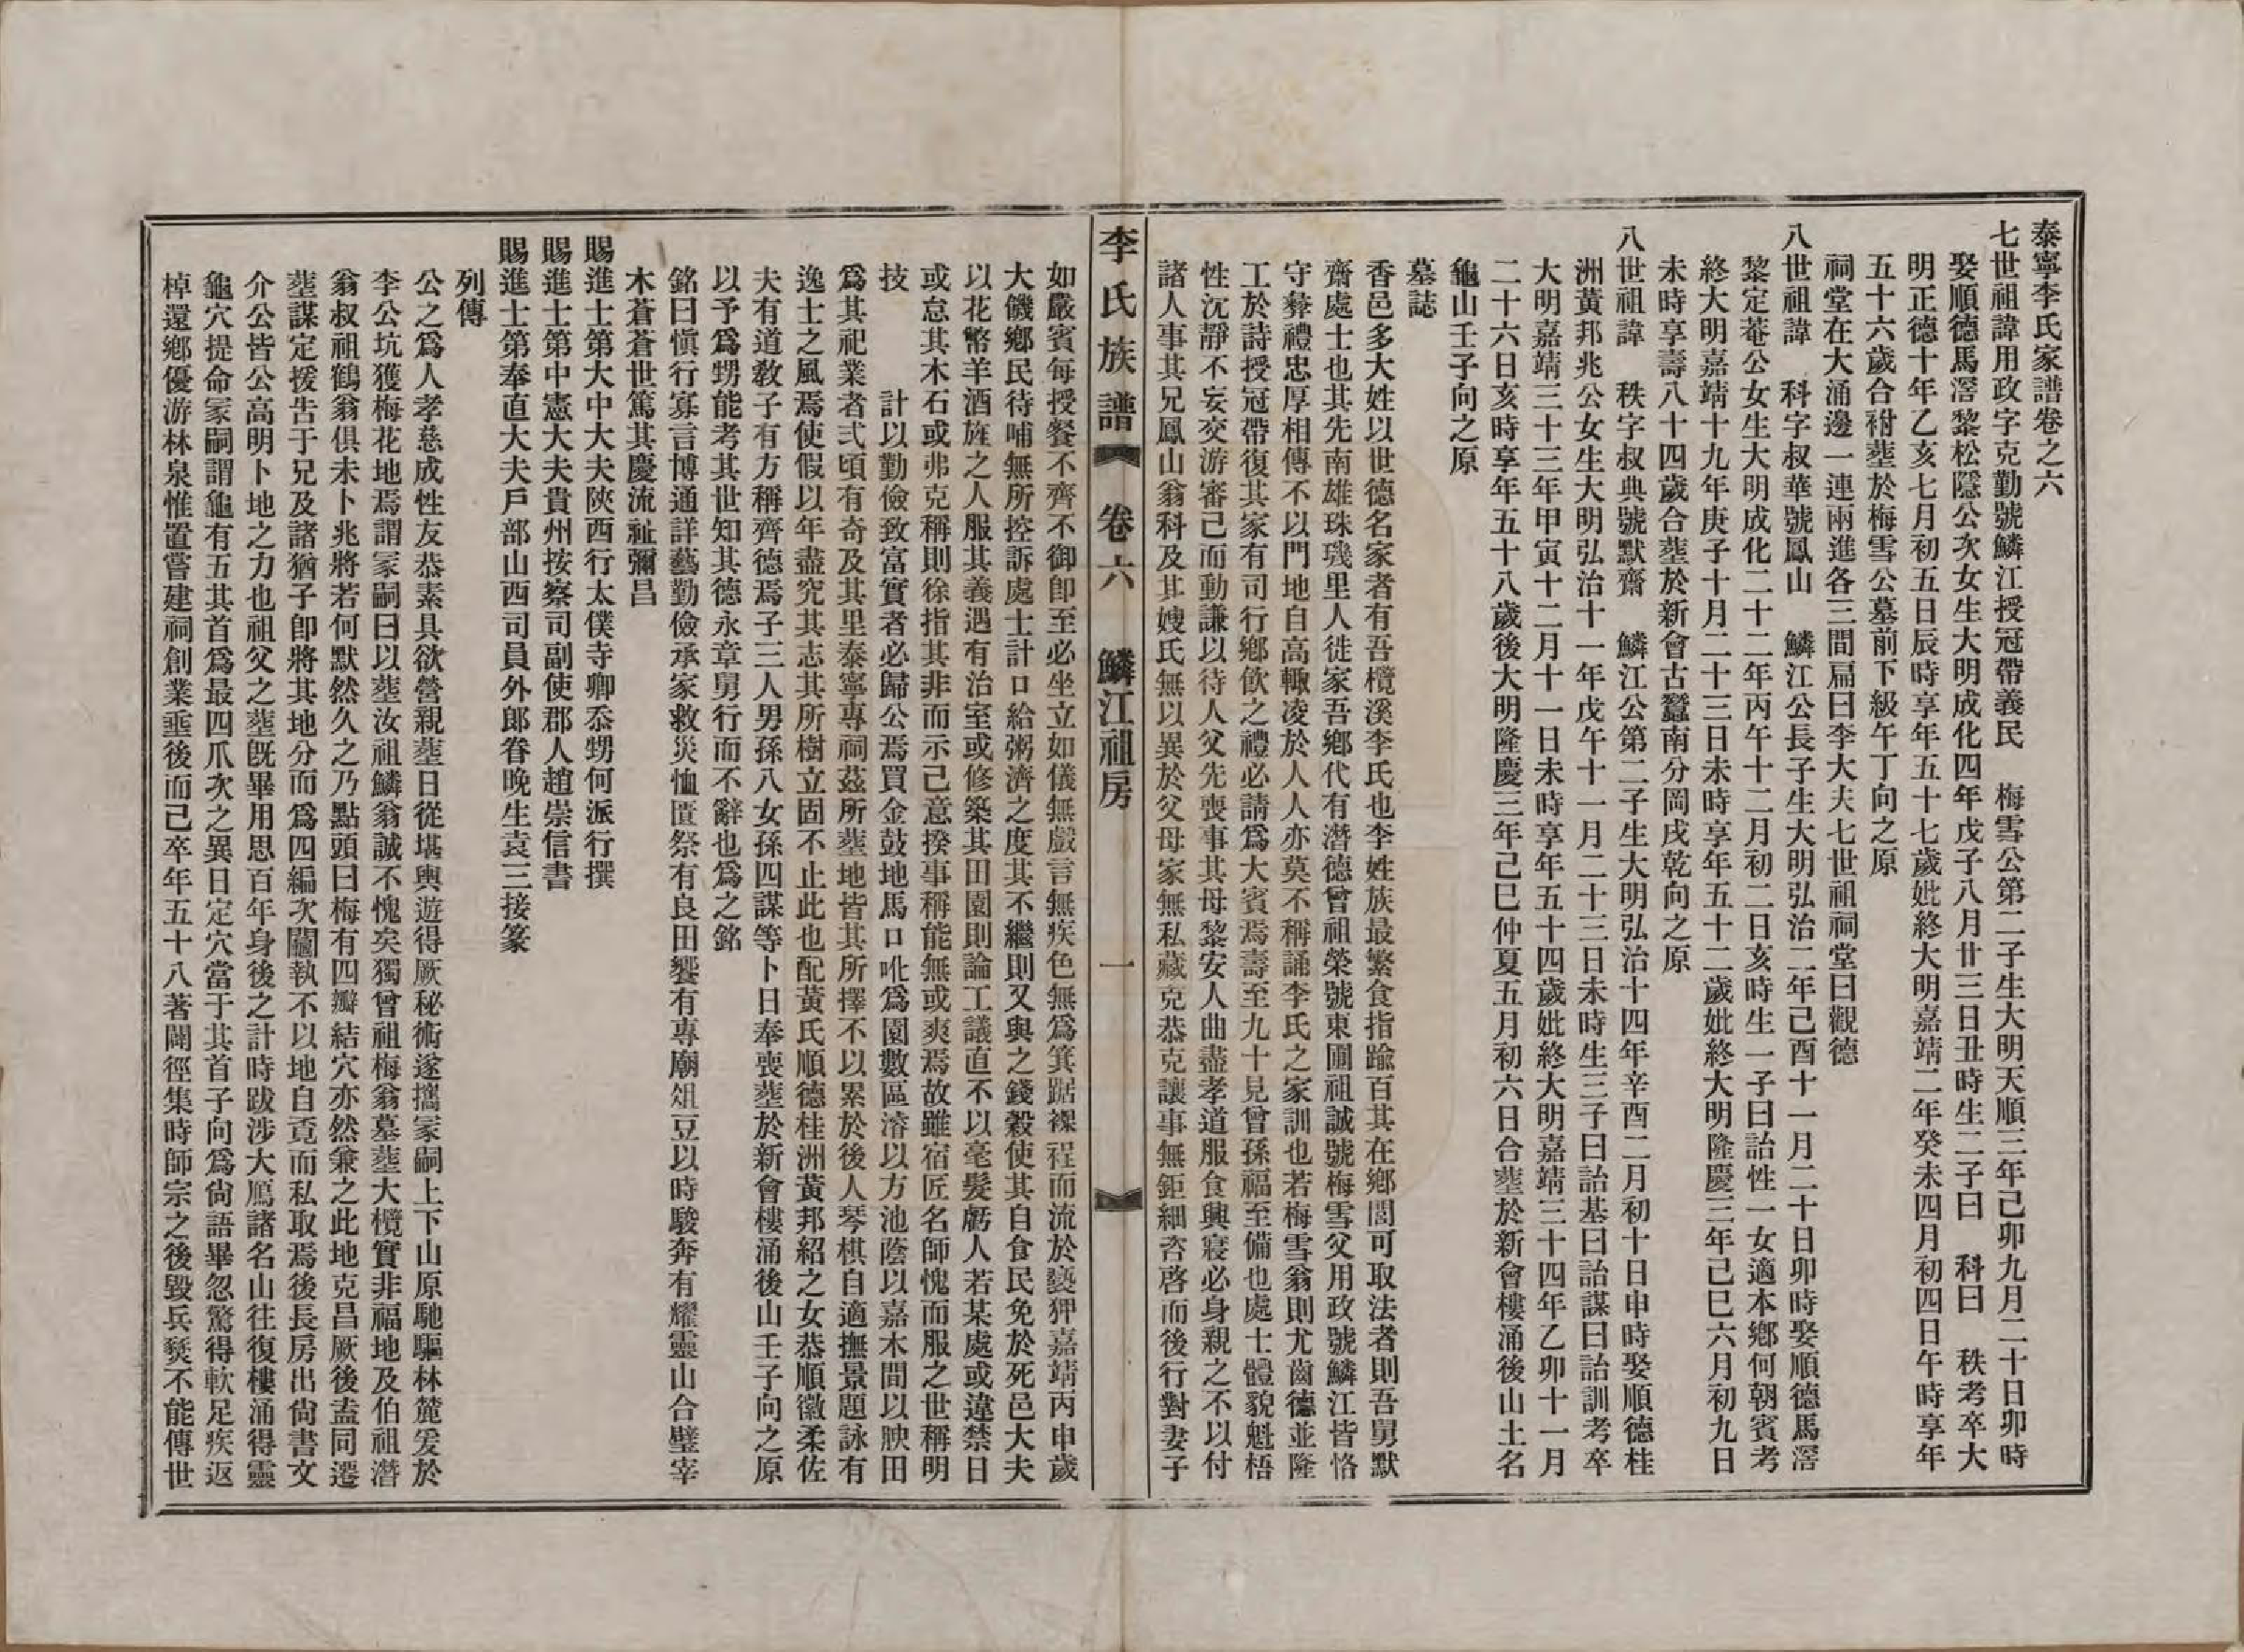 泰寧李氏家譜卷之六
七世祖諱用政字克勤號鱗江授冠帶義民　梅雪公第二子生大明天順三年己卯九月二十日卯時
娶順德馬滘黎松隱公次女生大明成化四年戊子八月廿三日丑時生二子曰　科曰　秩考卒大
明正德十年乙亥七月初五日辰時享年五十七歲妣終大明嘉靖二年癸未四月初四日午時享年
五十六歲合祔塟於梅雪公墓前下級午丁向之原
祠堂在大涌邊一連兩進各三間扁曰李大夫七世祖祠堂曰觀德
八世祖諱　科字叔華號鳳山　鱗江公長子生大明弘治二年己酉十一月二十日卯時娶順德馬滘
黎定菴公女生大明成化二十二年丙午十二月初二日亥時生一子曰詒性一女適本鄉何朝賓考
終大明嘉靖十九年庚子十月二十三日未時享年五十二歲妣終大明隆慶三年己巳六月初九日
未時享壽八十四歲合塟於新會古蠶南分岡戌乾向之原
八世祖諱　秩字叔典號默齋　鱗江公第二子生大明弘治十四年辛酉二月初十日申時娶順德桂
洲黃邦兆公女生大明弘治十一年戊午十一月二十三日未時生三子曰詒基曰詒謀曰詒訓考卒
大明嘉靖三十三年甲寅十二月十一日未時享年五十四歲妣終大明嘉靖三十四年乙卯十一月
二十六日亥時享年五十八歲後大明隆慶三年己巳仲夏五月初六日合塟於新會樓涌後山土名
龜山壬子向之原
墓誌
香邑多大姓以世德名家者有吾欖溪李氏也李姓族最繁食指踰百其在鄉閭可取法者則吾舅默
齋處士也其先南雄珠璣里人徙家吾鄉代有潛德曾祖榮號東圃祖誠號梅雪父用政號鱗江皆恪
守彝禮忠厚相傳不以門地自高輙凌於人人亦莫不稱誦李氏之家訓也若梅雪翁則尤齒德並隆
工於詩授冠帶復其家有司行鄉飲之禮必請爲大賓焉壽至九十見曾孫福至備也處士體貌魁梧
性沉靜不妄交游審己而動謙以待人父先喪事其母黎安人曲盡孝道服食興寢必身親之不以付
諸人事其兄鳳山翁科及其嫂氏無以異於父母家無私藏克恭克讓事無鉅細咨啓而後行對妻子
李氏族譜　卷六　鱗江祖房　一
如嚴賓每授餐不齊不御卽至必坐立如儀無戲言無疾色無爲箕踞裸程而流於褻狎嘉靖丙申歲
大饑鄉民待哺無所控訴處士計口給粥濟之度其不繼則又與之錢穀使其自食民免於死邑大夫
以花幣羊酒旌之人服其義遇有治室或修築其田園則論工議直不以毫髮虧人若某處或違禁日
或怠其木石或弗克稱則徐指其非而示己意揆事稱能無或爽焉故雖宿匠名師愧而服之世稱明
技　　　計以勤儉致富實者必歸公焉買金鼓地馬口吪爲園數區濬以方池蔭以嘉木間以腴田
爲其祀業者弍頃有奇及其里泰寧專祠茲所塟地皆其所擇不以累於後人琴棋自適撫景題詠有
逸士之風焉使假以年盡究其志其所樹立固不止此也配黃氏順德桂洲黃邦紹之女恭順徽柔佐
夫有道敎子有方稱齊德焉子三人男孫八女孫四謀等卜日奉喪塟於新會樓涌後山壬子向之原
以予爲甥能考其世知其德永章舅行而不辭也爲之銘
銘曰愼行寡言博通詳藝勤儉承家救災恤匱祭有良田饗有專廟俎豆以時駿奔有耀靈山合璧宰
木蒼蒼世篤其慶流祉彌昌
賜進士第大中大夫陝西行太僕寺卿忝甥何派行撰
賜進士第中憲大夫貴州按察司副使郡人趙崇信書
賜進士第奉直大夫戶部山西司員外郎眷晚生袁三接篆
列傳
公之爲人孝慈成性友恭素具欲營親塟日從堪輿遊得厥秘術遂攜冢嗣上下山原馳驅林麓爰於
李公坑獲梅花地焉謂冢嗣曰以塟汝祖鱗翁誠不愧矣獨曾祖梅翁墓塟大欖實非福地及伯祖潛
翁叔祖鶴翁俱未卜兆將若何默然久之乃點頭曰梅有四瓣結穴亦然兼之此地克昌厥後盍同遷
塟謀定援告于兄及諸猶子卽將其地分而爲四編次鬮執不以地自私而私取焉後長房出尙書文
介公皆公高明卜地之力也祖父之塟旣畢用思百年身後之計時跋涉大鴈諸名山往復樓涌得靈
龜穴提命冢嗣謂龜有五其首爲最四爪次之異日定穴當于其首子向爲尙語畢忽驚得軟足疾返
棹還鄉優游林泉惟置嘗建祠創業埀後而己卒年五十八著闢徑集時師宗之後毀兵燹不能傳世